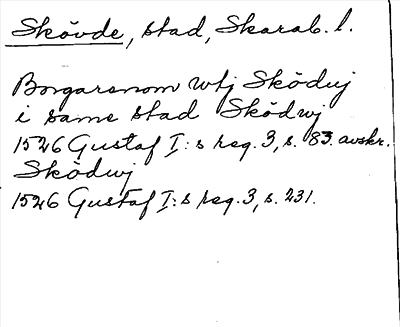 Skövde, stad, Skarab. l.
Borgaresnom wtj Sködwj
i same stad Sködwj
1526 Gustaf I:s reg. 3, s. 83. avskr.
Sködwj
1526 Gustaf I:s reg. 3, s. 231.